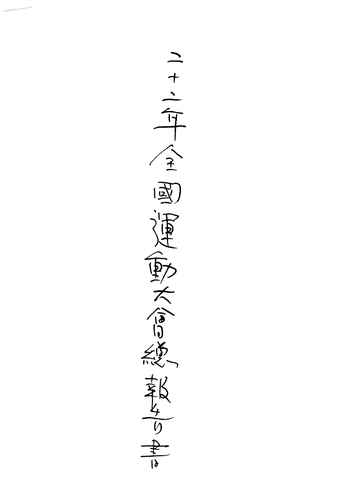 二十二年全國運動大會總報告書